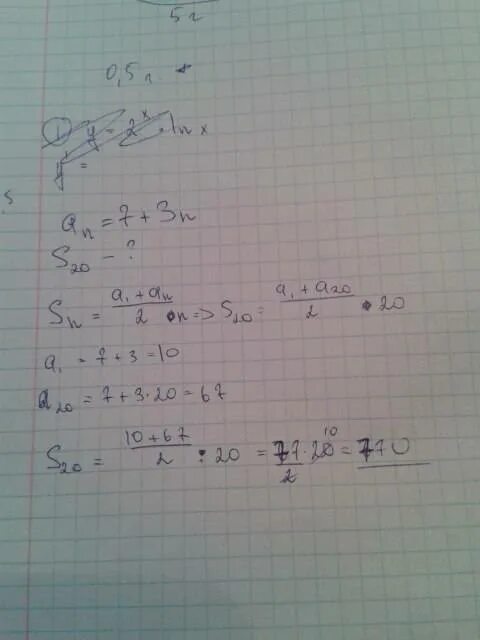 5 г
0,5 г
① y = 2ˣ · ln x
y' =
aₙ = 7 + 3n
S₂₀ - ?
Sₙ = (a₁ + aₙ)/2 · n => S₂₀ = (a₁ + a₂₀)/2 · 20
a₁ = 7 + 3 = 10
a₂₀ = 7 + 3 · 20 = 67
S₂₀ = (10 + 67)/2 · 20 = 77 · 20/2 10 = 770